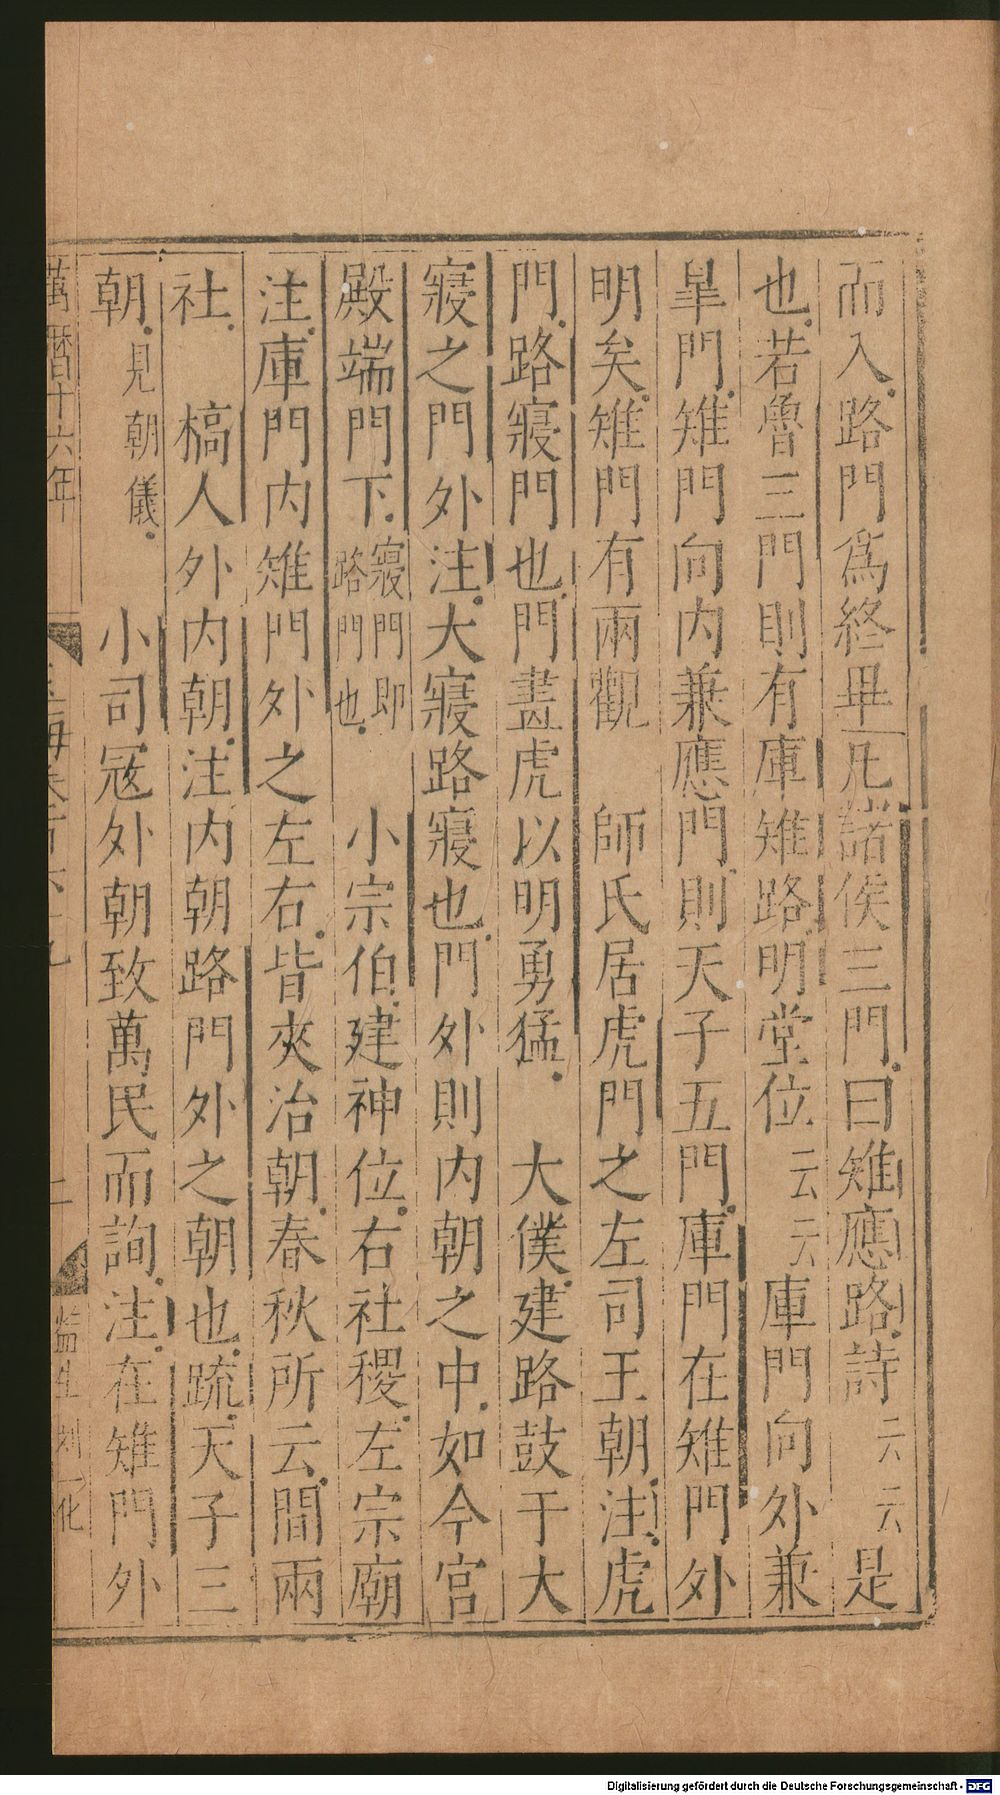 而入路門爲終畢凡諸侯三門曰雉應路詩云云是
也若魯三門則有庫雉路明堂位云云庫門向外兼
臯門雉門向内兼應門則天子五門庫門在雉門外
明矣雉門有兩觀　師氏居虎門之左司王朝注虎
門路寢門也門畫虎以明勇猛　大僕建路鼓于大
寢之門外注大寢路寢也門外則内朝之中如今宮
殿端門下寢門即路門也　小宗伯建神位右社稷左宗廟
注庫門内雉門外之左右皆夾治朝春秋所云間兩
社　槁人外内朝注内朝路門外之朝也疏天子三
朝見朝儀　小司寇外朝致萬民而詢注在雉門外
萬暦十六年
玉海卷百六十九
二
監生刘化
Digitalisierung gefördert durch die Deutsche Forschungsgemeinschaft - DFG